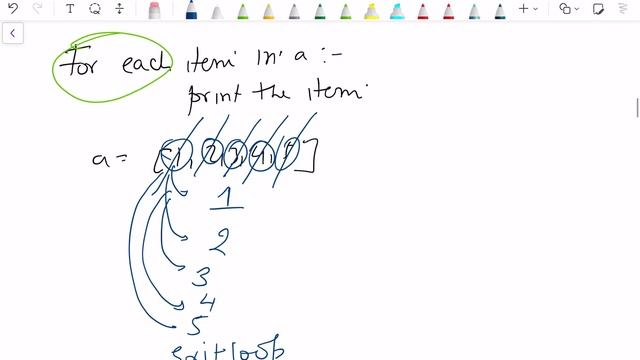 For each item in a :-
print the item
a = [1, 2, 3, 4, 5]
1
2
3
4
5
exit loop